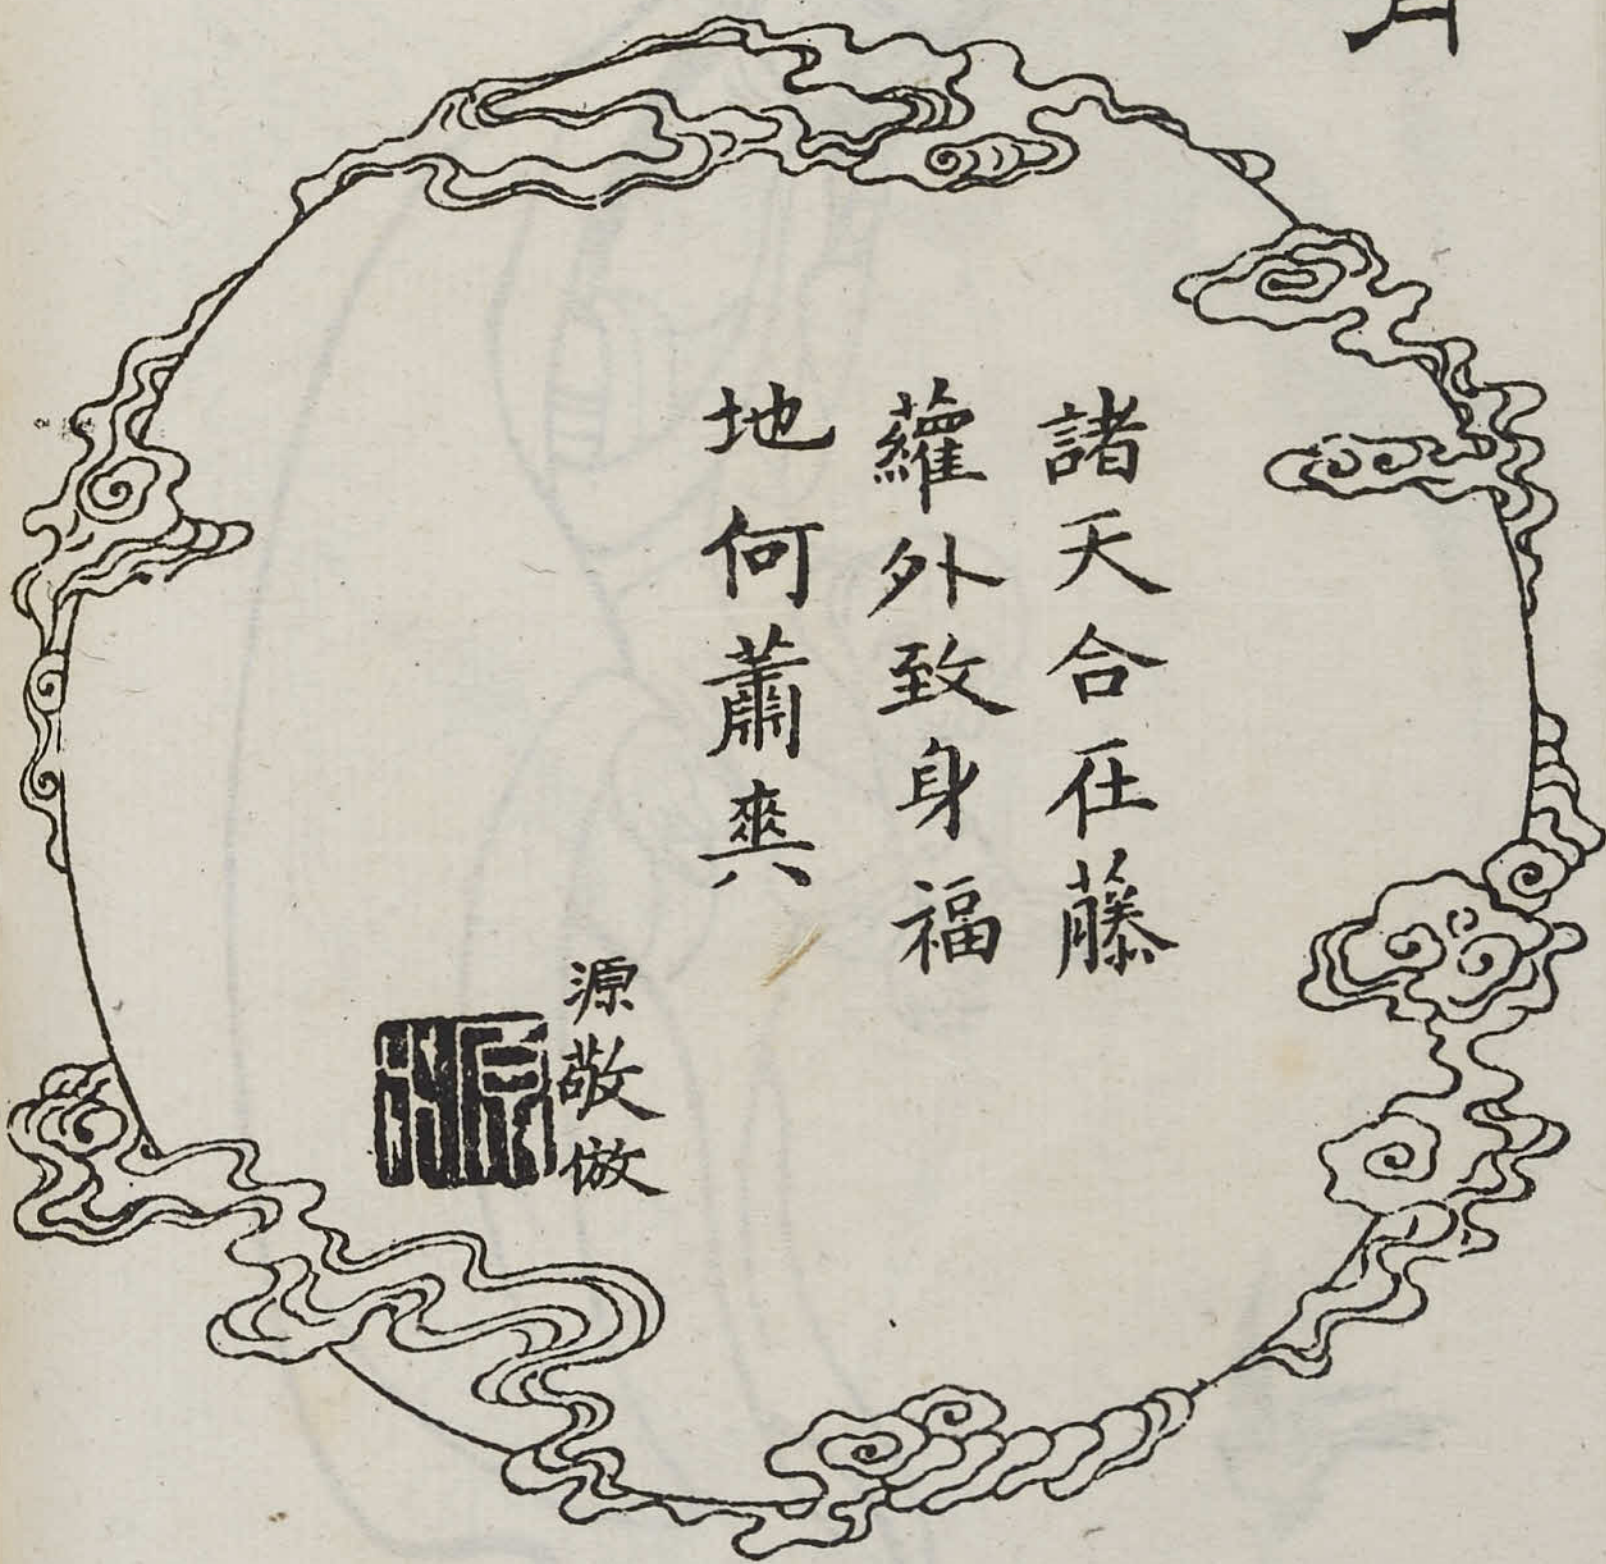 諸天合在藤
蘿外致身福
地何蕭爽
源敬倣